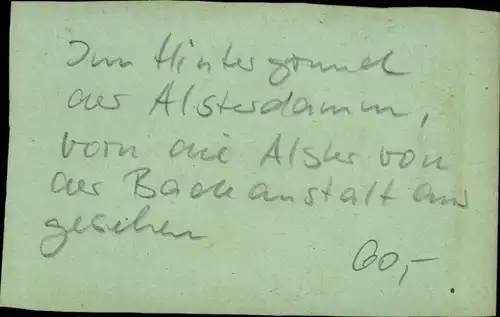 Im Hintergrund
der Alsterdamm,
vorn die Alster von
der Badeanstalt aus
gesehen
60,-